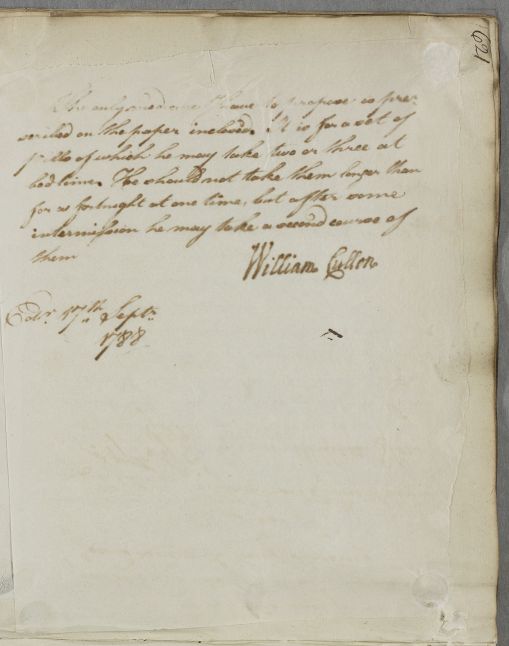 621
The only medicine I have to propose is pre-
scribed on the paper inclosed. It is for a set of
pills of which he may take two or three at
bed time. He should not take them longer than
for a fortnight at one time, but after some
intermission he may take a second course of
them
William Cullen
Edinr. 17th Septr.
1788